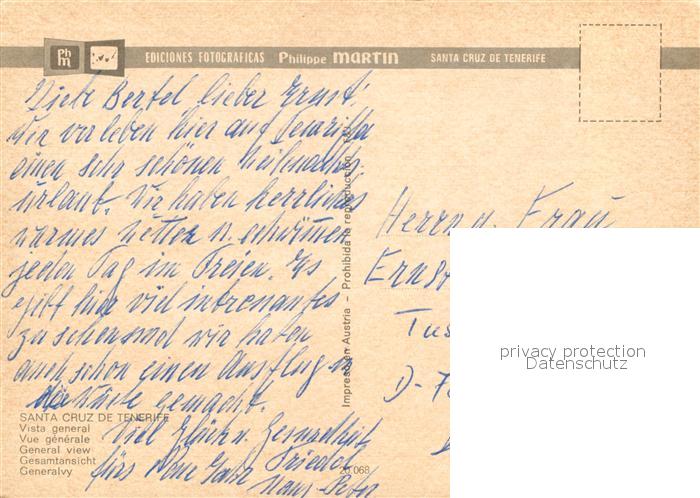 Ph
m
EDICIONES FOTOGRAFICAS Philippe MARTIN SANTA CRUZ DE TENERIFE
Liebe Bertel, lieber Ernst!
Wir verleben hier auf Teneriffa
einen sehr schönen Weihnachts-
urlaub. Wir haben herrliches
warmes Wetter u. schwimmen
jeden Tag im Freien. Es
gibt hier viel interessantes
zu sehen und wir haben
auch schon einen Ausflug in
die Wüste gemacht.
Viel Glück u. Gesundheit
fürs Neue Jahr Friedel
Hans-Peter
SANTA CRUZ DE TENERIFE
Vista general
Vue générale
General view
Gesamtansicht
Generalvy
20.068
Impreso en Austria – Prohibida la reproducción
Herrn u. Frau
Ernst
Tus
D-7
privacy protection
Datenschutz